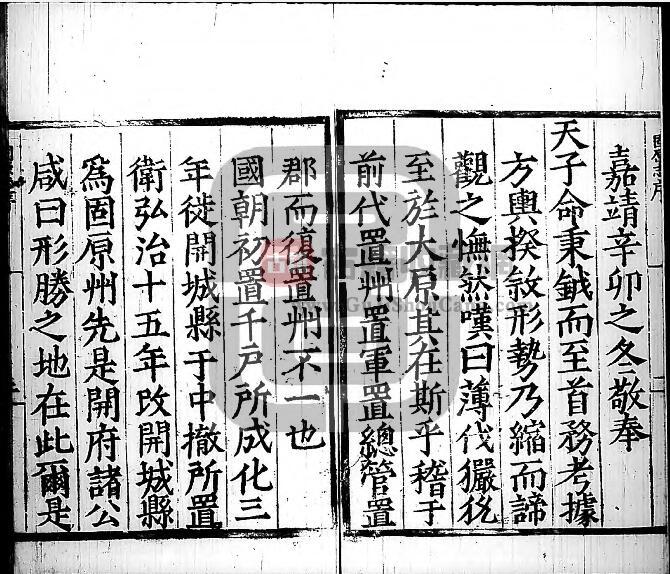 嘉靖辛卯之冬敬奉
天子命秉鉞而至首務考據
方輿揆敘形勢乃縮而諦
觀之憮然嘆曰薄伐玁狁
至於大原其在斯乎稽于
前代置州置軍置總管置
郡而復置州不一也
國朝初置千戶所成化三
年徙開城縣于中撤所置
衛弘治十五年改開城縣
為固原州先是開府諸公
咸曰形勝之地在此爾是